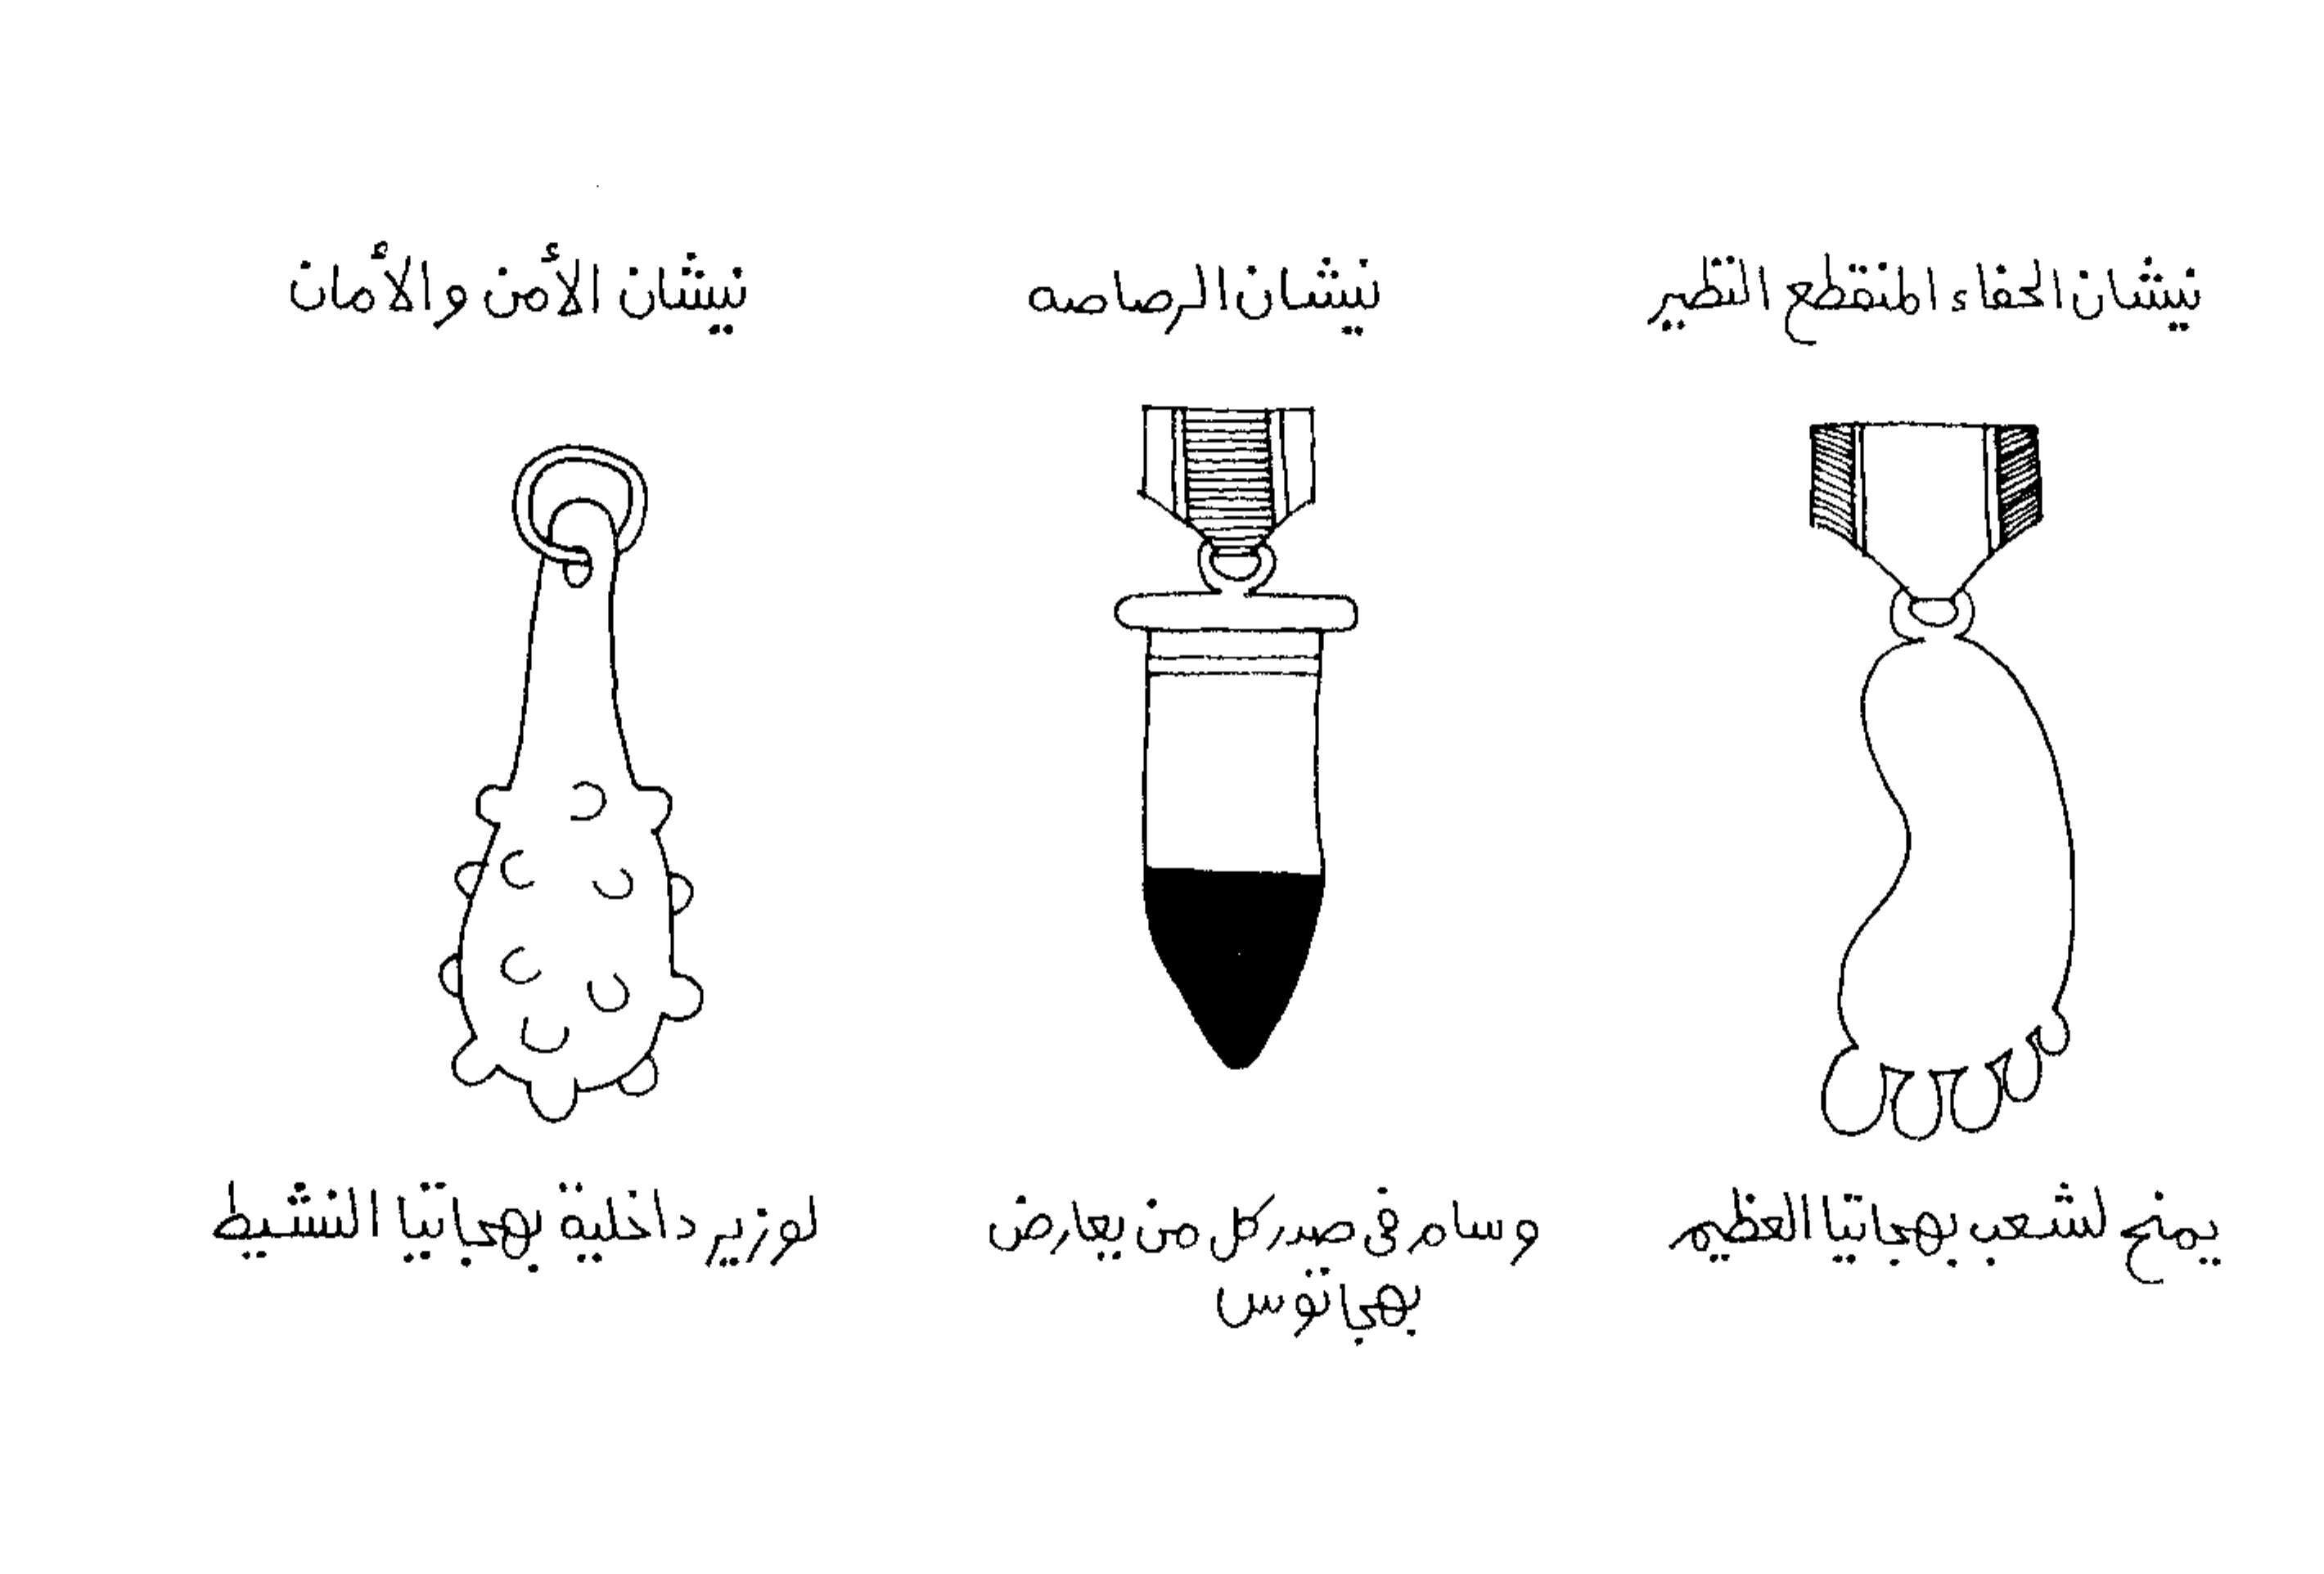 نيشان الحفاء المنقطع النظير
يمنح لشعب بهجاتيا العظيم
نيشان الرصاصه
وسام فى صدر كل من يعارض
بهجاتوس
نيشان الأمن والأمان
لوزير داخلية بهجاتيا النشيط